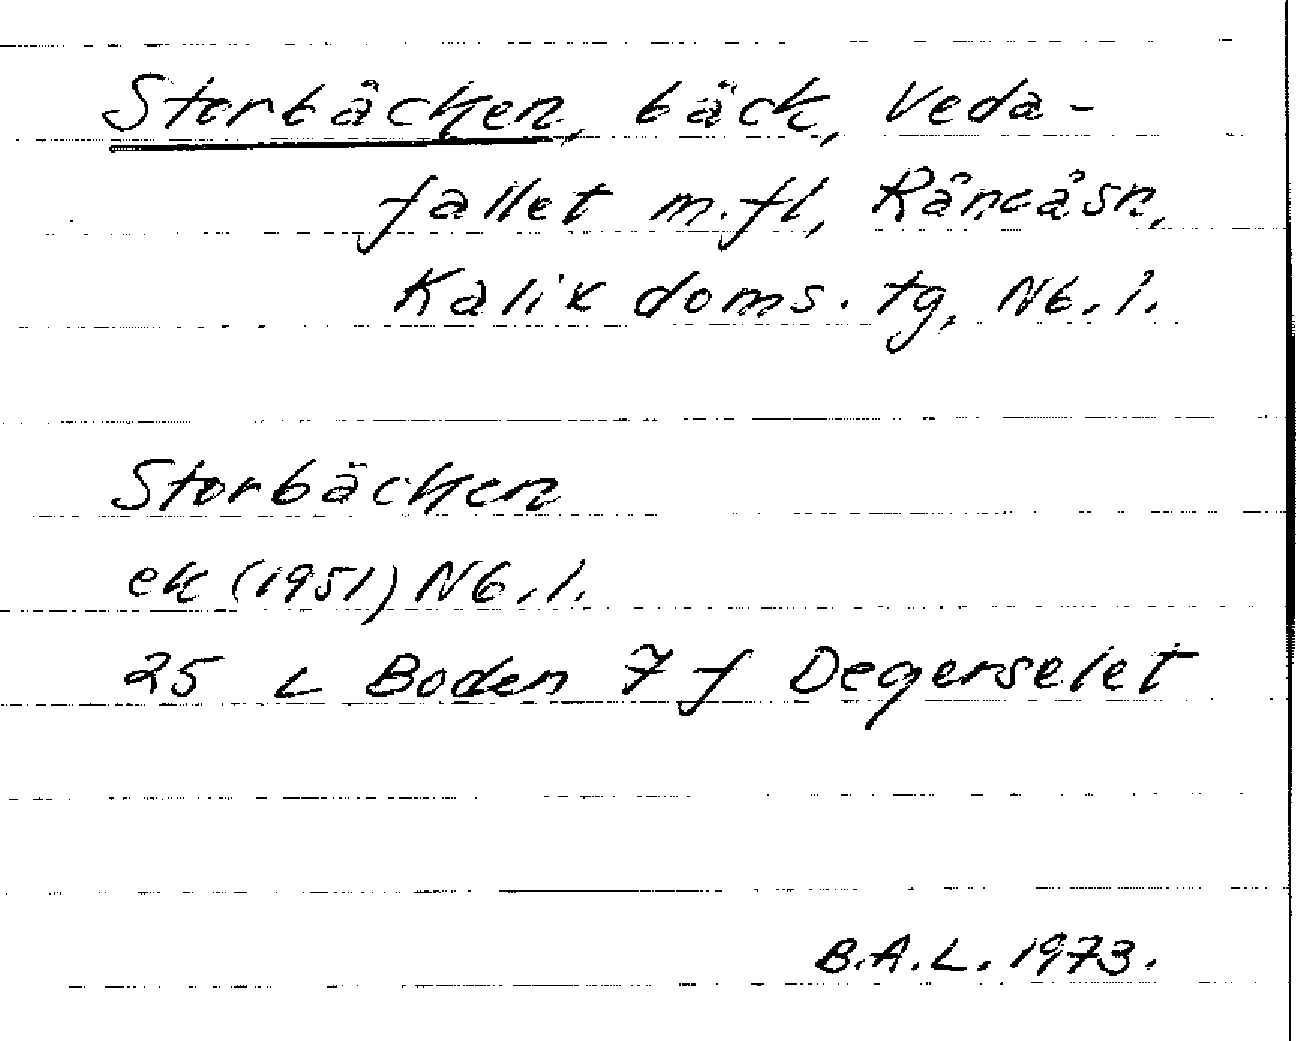 Storbäcken, bäck, Veda-
fallet m.fl, Råneåsn,
Kalix doms. tg, Nb. l.
Storbäcken
ek (1951) Nb. l.
25 L Boden 7 f Degerselet
B.A.L. 1973.